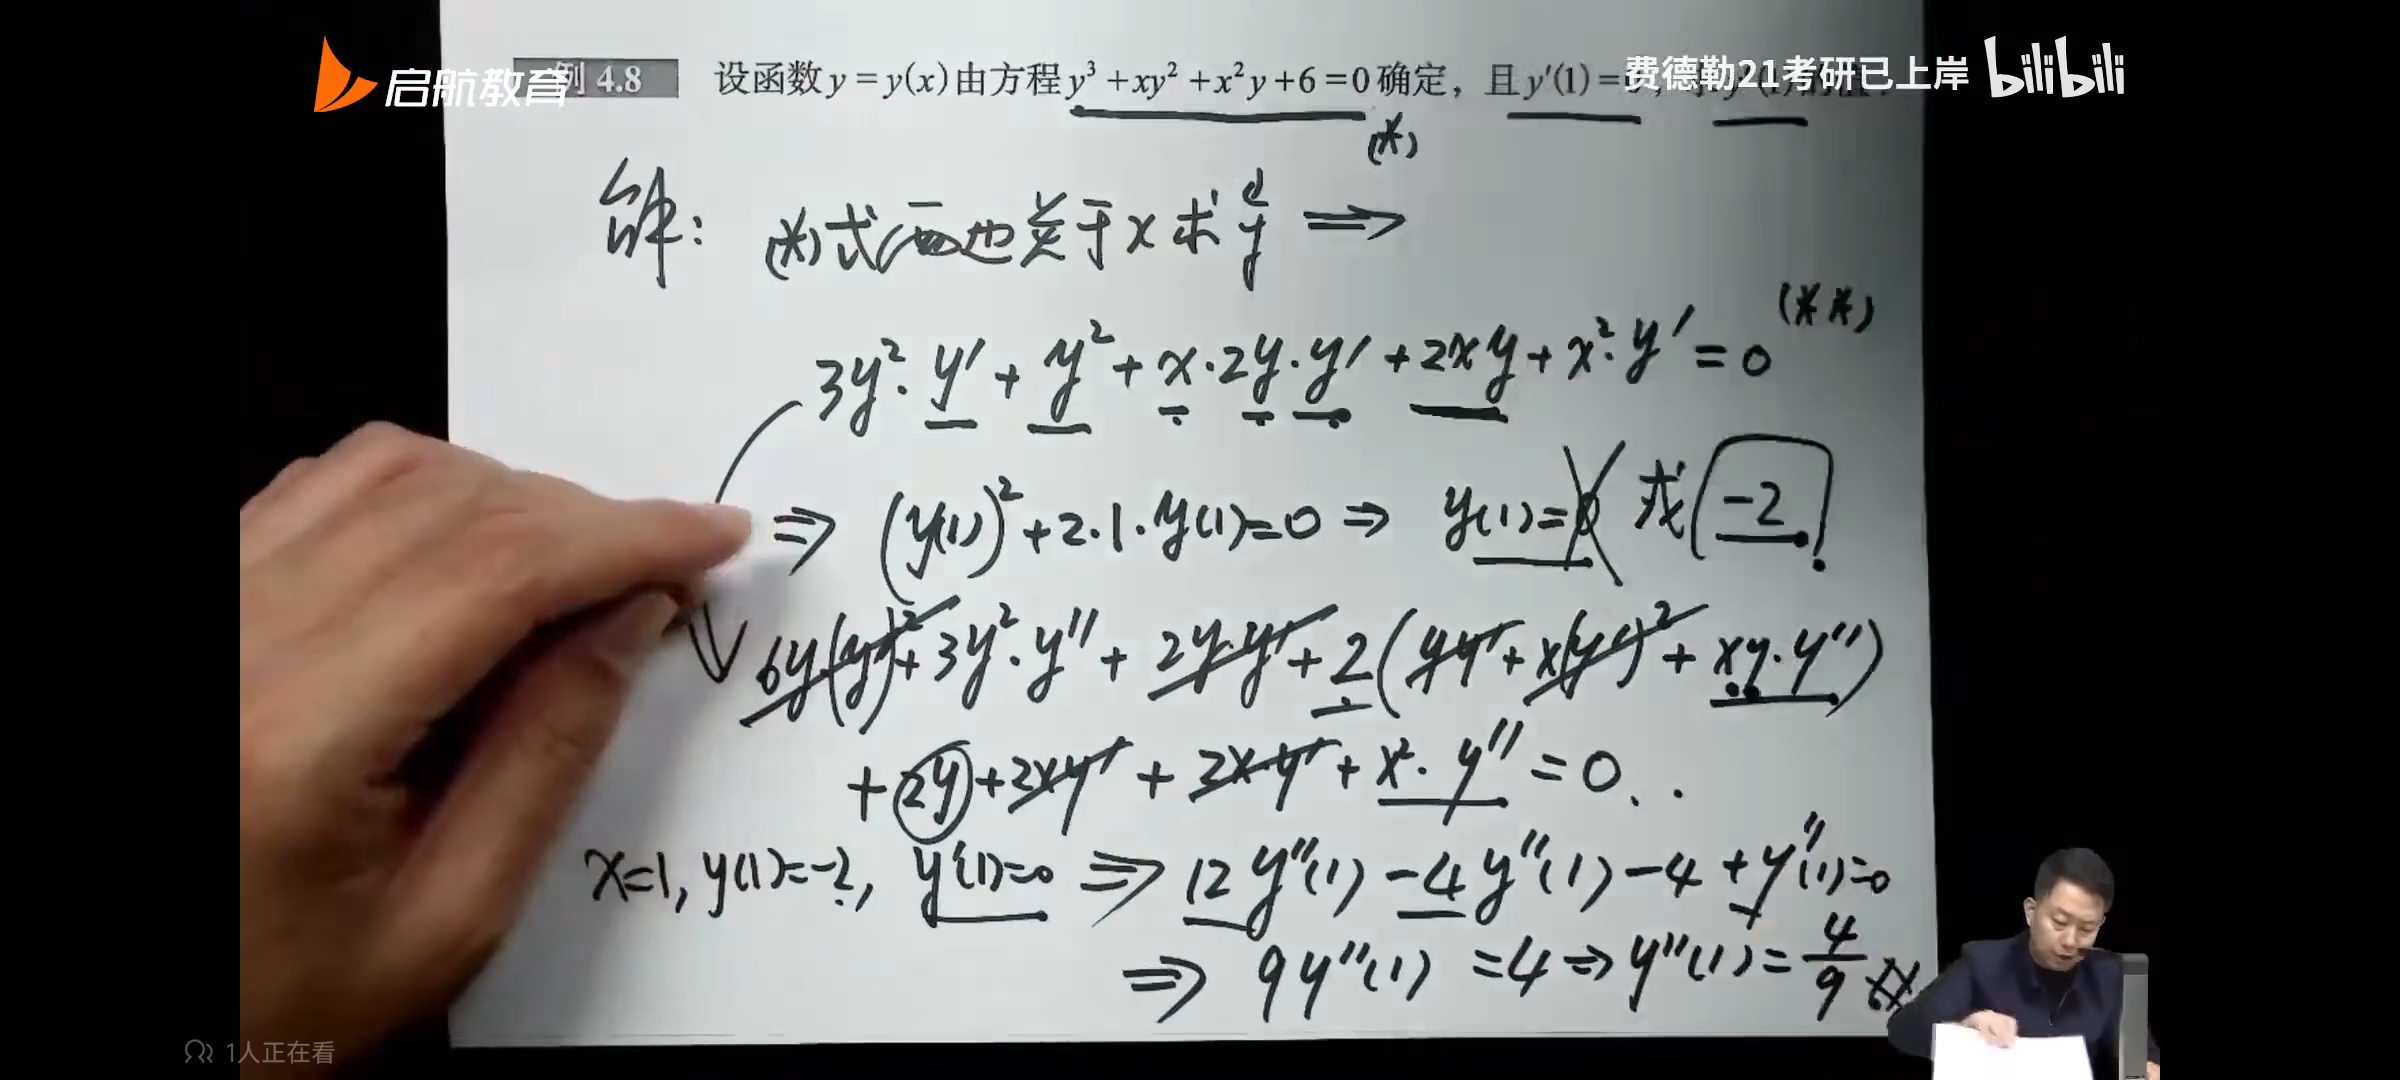 启航教育
例 4.8 设函数 y = y(x) 由方程 y³ + xy² + x²y + 6 = 0 确定，且 y′(1) =
费德勒21考研已上岸 bilibili
(*)
解: (*)式两边关于 x 求导 ⟹
3y²·y′ + y² + x·2y·y′ + 2xy + x²·y′ = 0 (**)
⇒ (y(1))² + 2·1·y(1) = 0 ⇒ y(1) = 0 或 -2
6y·(y′)² + 3y²·y″ + 2y·y′ + 2(yy′ + x(y′)² + xy·y″)
+ 2y + 2xy′ + 2x·y′ + x²·y″ = 0
x=1, y(1)=-2, y′(1)=0 ⟹ 12y″(1) -4y″(1) -4 + y″(1)=0
⟹ 9y″(1) = 4 ⇒ y″(1) = 4/9
1人正在看